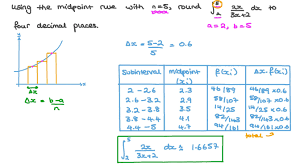 Using the midpoint rule with n=5, round ∫₂⁵ 2x/(3x+2) dx to
four decimal places.
a=2, b=5
Δx = (5-2)/5 = 0.6
Δx
Δx = (b-a)/n
Subinterval midpoint (xᵢ) f(xᵢ) Δx·f(xᵢ)
2 - 2.6 2.3 46/89 46/89 × 0.6
2.6 - 3.2 2.9 58/107 58/107 × 0.6
3.2 - 3.8 3.5 14/25 14/25 × 0.6
3.8 - 4.4 4.1 82/143 82/143 × 0.6
4.4 - 5 4.7 94/161 94/161 × 0.6
total →
∫₂⁵ 2x/(3x+2) dx ≈ 1.6657